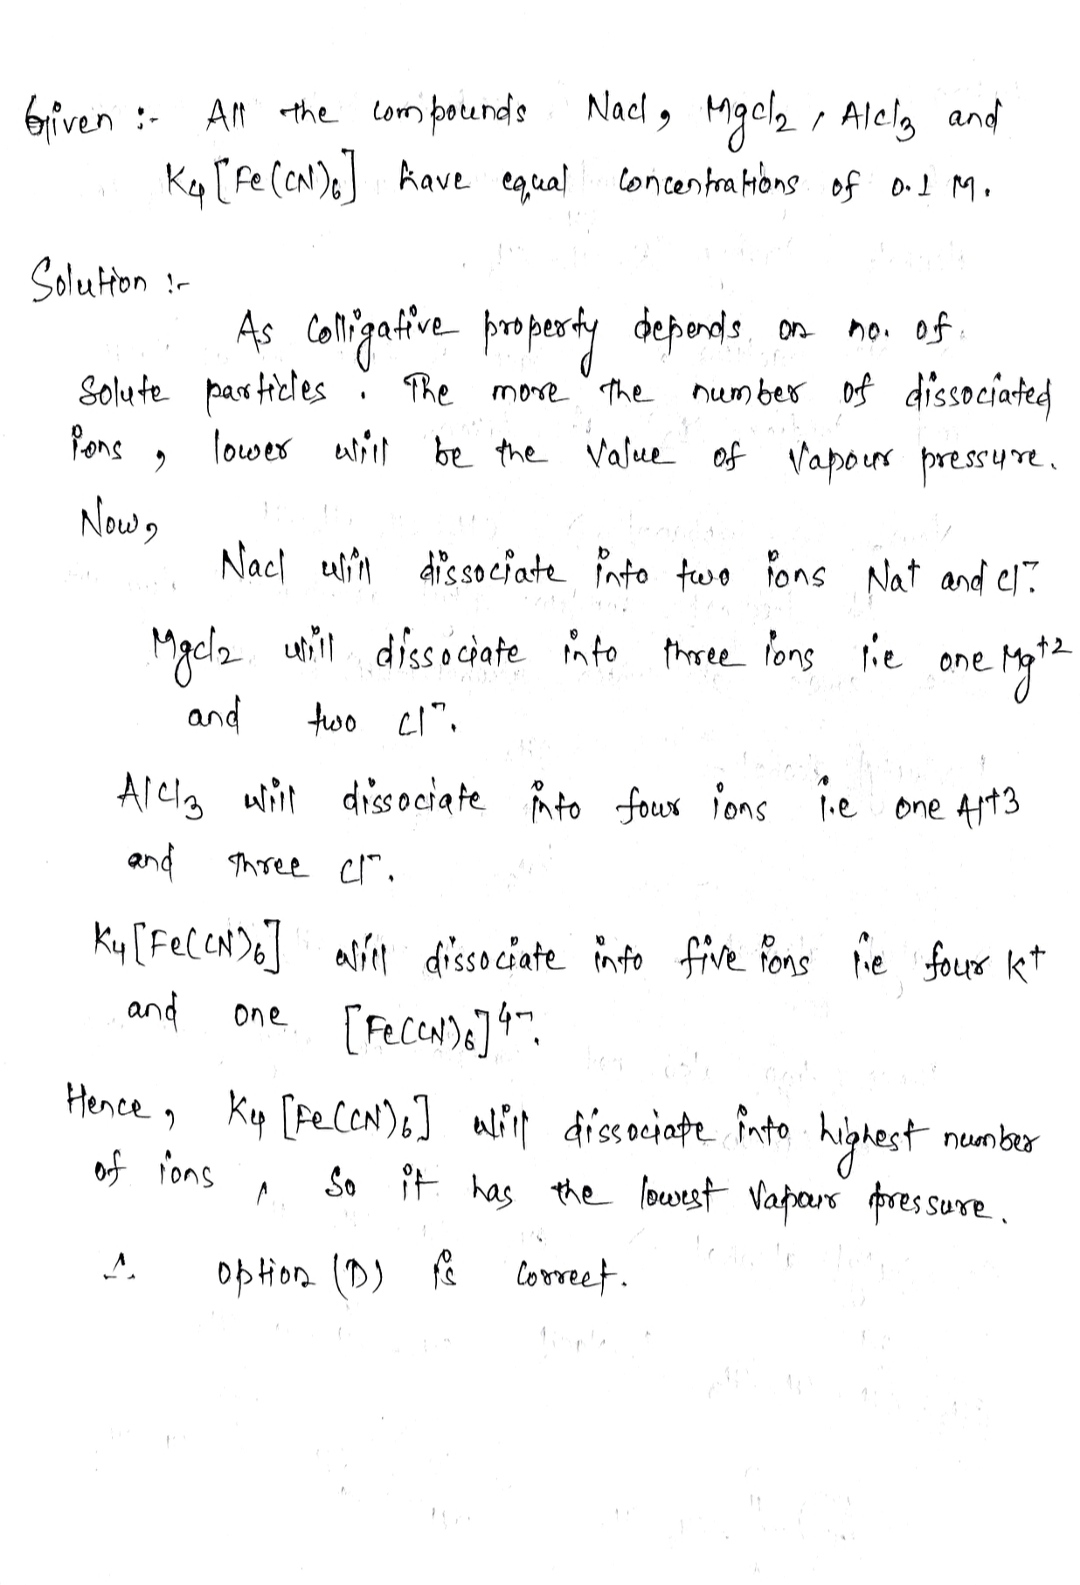 Given :- All the compounds Nacl, Mgcl2, Alcl3 and
K4[Fe(CN)6] have equal concentrations of 0.1 M.
Solution :-
As Colligative property depends on no. of
Solute particles. The more the number of dissociated
ions, lower will be the value of vapour pressure.
Now,
Nacl will dissociate into two ions Na+ and cl-.
Mgcl2 will dissociate into three ions i.e one Mg+2
and two cl-.
Alcl3 will dissociate into four ions i.e one Al+3
and three cl-.
K4[Fe(CN)6] will dissociate into five ions i.e four K+
and one [Fe(CN)6]4-.
Hence, K4[Fe(CN)6] will dissociate into highest number
of ions, So it has the lowest Vapour pressure.
∴ option (D) is correct.